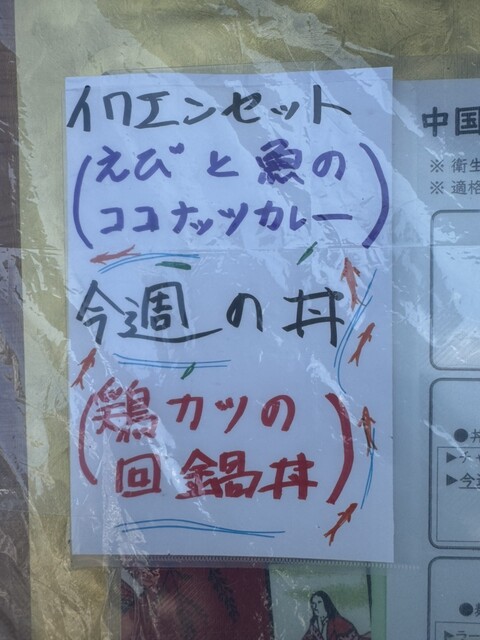 イワエンセット
(えびと魚の
ココナッツカレー)
今週の丼
(鶏カツの
回鍋丼)
中国
※ 衛生
※ 適格